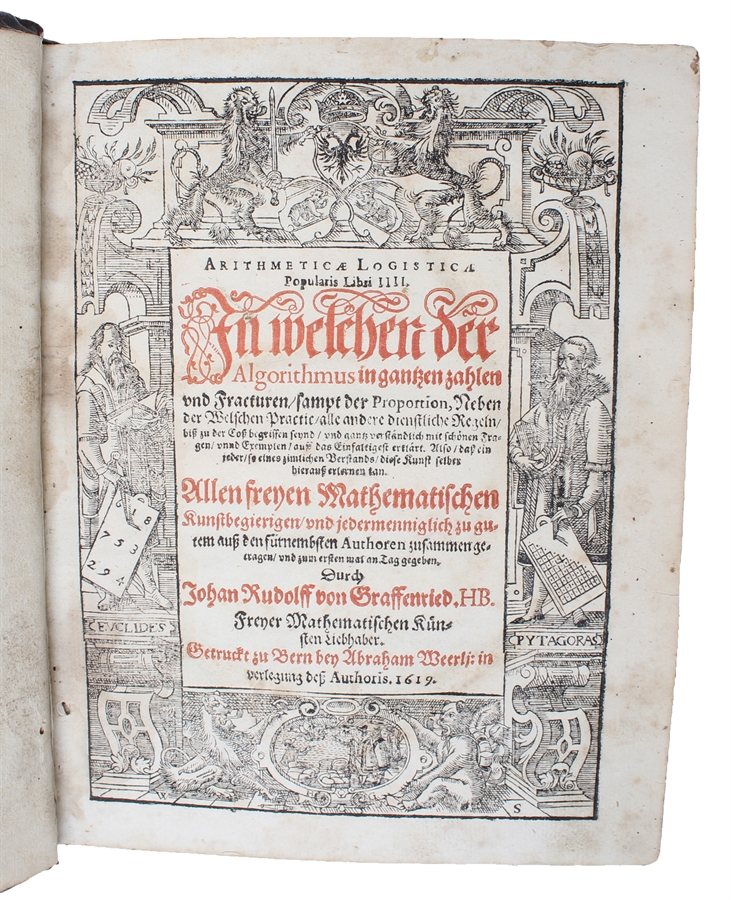 ARITHMETICÆ LOGISTICA
Popularis Libri IIII.
In welchen der
Algorithmus in gantzen zahlen
vnd Fracturen/sampt der Proportion, Neben
der Welschen Practic/alle andere dienstliche Regeln/
biß zu der Coß begriffen seynd/vnd gantz verständlich mit schönen Fra-
gen/vnnd Exemplen/auß das Einfaltigest erklärt. Also/daß ein
jeder/so eines zimlichen Verstands/diese Kunst selber
hierauß erlernen kan.
Allen freyen Mathematischen
Kunstbegierigen/vnd jedermenniglich zu gu-
tem auß den fürnembsten Authoren zusammen ge-
tragen/vnd zum ersten mal an Tag gegeben.
Durch
Johan Rudolff von Graffenried.HB.
Freyer Mathematischen Kün-
sten Liebhaber.
Getruckt zu Bern bey Abraham Weerlj: in
verlegung deß Authoris. 1619.
618
753
294
EVCLIDES
PYTAGORAS
S